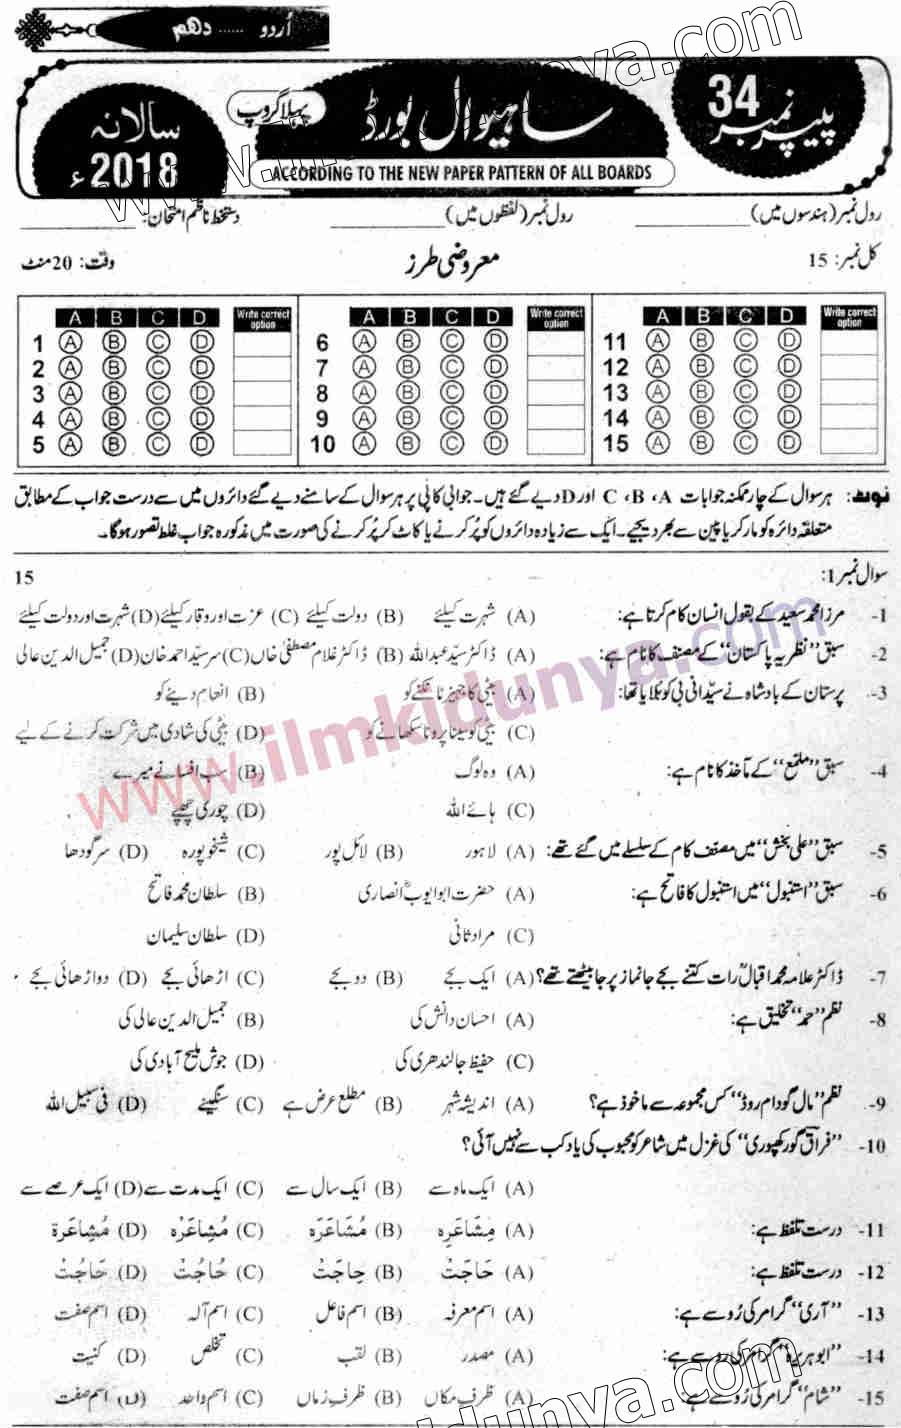 اُردو ...... دہم
پیپر نمبر 34
ساہیوال بورڈ
پہلا گروپ
سالانہ 2018ء
ACCORDING TO THE NEW PAPER PATTERN OF ALL BOARDS
رول نمبر (ہندسوں میں) ____________ رول نمبر (لفظوں میں) ____________ دستخط ناظم امتحان: ____________
کل نمبر: 15 معروضی طرز وقت: 20 منٹ
A B C D Write correct option A B C D Write correct option A B C D Write correct option
1 A B C D 6 A B C D 11 A B C D
2 A B C D 7 A B C D 12 A B C D
3 A B C D 8 A B C D 13 A B C D
4 A B C D 9 A B C D 14 A B C D
5 A B C D 10 A B C D 15 A B C D
نوٹ: ہر سوال کے چار ممکنہ جوابات A ، B ، C اور D دیے گئے ہیں۔ جوابی کاپی پر ہر سوال کے سامنے دیے گئے دائروں میں سے درست جواب کے مطابق
متعلقہ دائرہ کو مارکر یا پین سے بھر دیجیے۔ ایک سے زیادہ دائروں کو پُر کرنے یا کاٹ کر پُر کرنے کی صورت میں مذکورہ جواب غلط تصور ہوگا۔
سوال نمبر 1: 15
1- مرزا محمد سعید کے بقول انسان کام کرتا ہے: (A) شہرت کیلئے (B) دولت کیلئے (C) عزت اور وقار کیلئے (D) شہرت اور دولت کیلئے
2- سبق ”نظریہ پاکستان“ کے مصنف کا نام ہے: (A) ڈاکٹر سیّد عبداللہ (B) ڈاکٹر غلام مصطفیٰ خاں (C) سرسیّد احمد خان (D) جمیل الدین عالی
3- پرستان کے بادشاہ نے سیّدانی بی کو بُلایا تھا: (A) بیٹی کا جہیز ٹانکنے کو (B) انعام دینے کو
(C) بیٹی کو سینا پرونا سکھانے کو (D) بیٹی کی شادی میں شرکت کرنے کے لیے
4- سبق ”ملمع“ کے مآخذ کا نام ہے: (A) وہ لوگ (B) سب افسانے میرے
(C) ہائے اللہ (D) چوری چھپے
5- سبق ”علی بخش“ میں مصنف کام کے سلسلے میں گئے تھے: (A) لاہور (B) لائل پور (C) شیخوپورہ (D) سرگودھا
6- سبق ”استنبول“ میں استنبول کا فاتح ہے: (A) حضرت ابو ایوب انصاریؓ (B) سلطان محمد فاتح
(C) مراد ثانی (D) سلطان سلیمان
7- ڈاکٹر علامہ محمد اقبالؒ رات کتنے بجے جانماز پر جا بیٹھتے تھے؟ (A) ایک بجے (B) دو بجے (C) اڑھائی بجے (D) دو اڑھائی بجے
8- نظم ”حمد“ تخلیق ہے: (A) احسان دانش کی (B) جمیل الدین عالی کی
(C) حفیظ جالندھری کی (D) جوش ملیح آبادی کی
9- نظم ”مال گودام روڈ“ کس مجموعہ سے ماخوذ ہے؟ (A) اندیشہ شہر (B) مطلع عرض ہے (C) سنگینے (D) فی سبیل اللہ
10- ”فراق گورکھپوری“ کی غزل میں شاعر کو محبوب کی یاد کب سے نہیں آئی؟
(A) ایک ماہ سے (B) ایک سال سے (C) ایک مدت سے (D) ایک عرصے سے
11- درست تلفظ ہے: (A) مِشَاعَرِہ (B) مُشَاعَرَہ (C) مُشِاعَرْہ (D) مُشِاعَرة
12- درست تلفظ ہے: (A) حَاجَتْ (B) حِاجَتْ (C) حُاجُتْ (D) حَاجُتْ
13- ”آری“ گرامر کی رُو سے ہے: (A) اسم معرفہ (B) اسم فاعل (C) اسم آلہ (D) اسم صفت
14- ”ابو ہریرہ“ گرامر کی رو سے ہے: (A) مصدر (B) لقب (C) تخلص (D) کنیت
15- ”شام“ گرامر کی رُو سے ہے: (A) ظرفِ مکاں (B) ظرفِ زماں (C) اسم واحد (D) اسم صفت
www.ilmkidunya.com